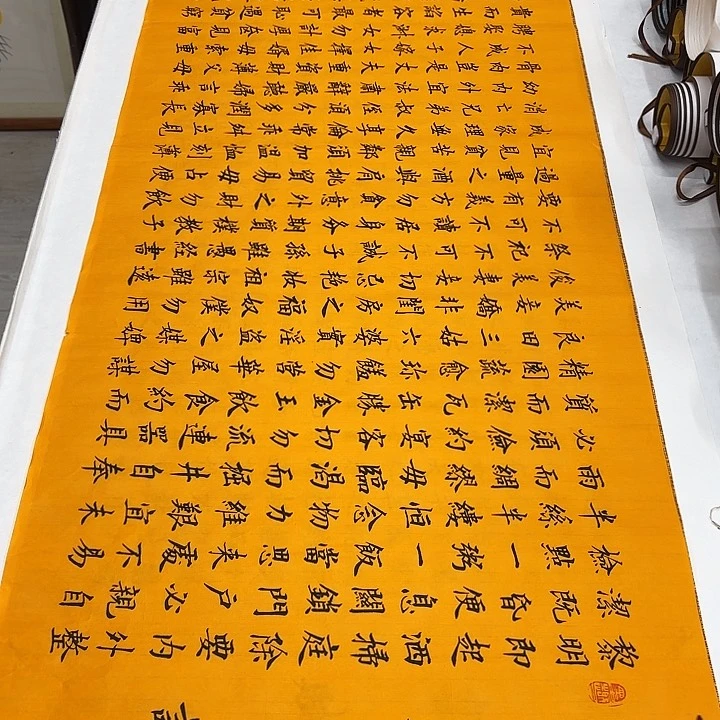 黎明即起洒掃庭除要內外整
潔既昏便息關鎖門戶必親自
檢點一粥一飯當思來處不易
半絲半縷恒念物力維艱宜未
雨而綢繆毋臨渴而掘井自奉
必須儉約宴客切勿流連器具
質而潔瓦缶勝金玉飲食約而
精園蔬愈珍饈勿營華屋勿謀
良田三姑六婆實淫盜之媒婢
美妾嬌非閨房之福奴僕勿用
俊美妻妾切忌艷妝祖宗雖遠
祭祀不可不誠子孫雖愚經書
不可不讀居身務期質樸教子
要有義方勿貪意外之財毋飲
過量之酒與肩挑貿易毋占便
宜見貧苦親鄰須加溫恤刻薄
成家理無久享倫常乖舛立見
消亡兄弟叔侄須分多潤寡長
幼內外宜法肅辭嚴聽婦言乖
骨肉豈是丈夫重資財薄父母
不成人子嫁女擇佳婿毋索重
聘娶媳求淑女勿計厚奩見富
貴而生諂容者最可恥遇貧窮